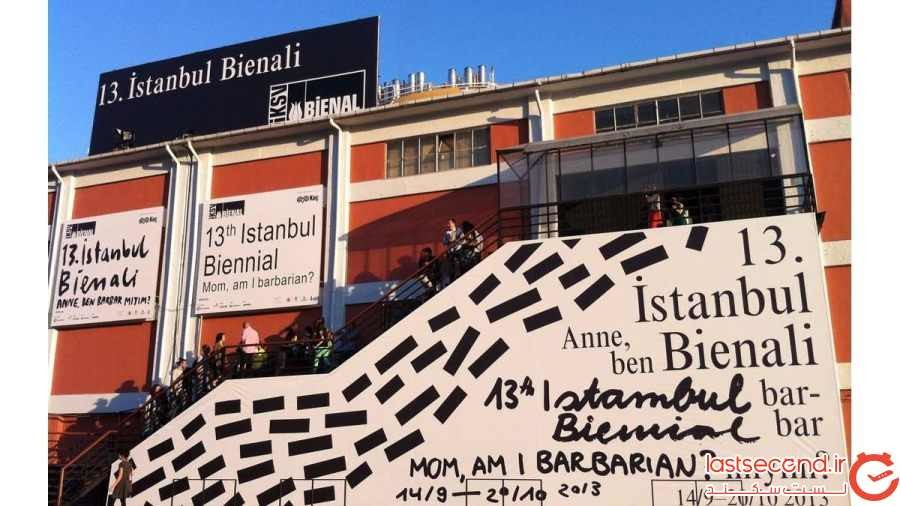 13. İstanbul Bienali
İKSV
BİENAL
İKSV BİENAL
Koç
13. İstanbul
Bienali
ANNE, BEN BARBAR MIYIM?
İKSV BİENAL
Koç
13th Istanbul
Biennial
Mom, am I barbarian?
13.
İstanbul
Anne,
ben Bienali
bar-
bar
mıyım?
14/9–20/10 2013
13th Istanbul
Biennial
MOM, AM I BARBARIAN?
14/9–20/10 2013
lastsecond.ir
لست سکند